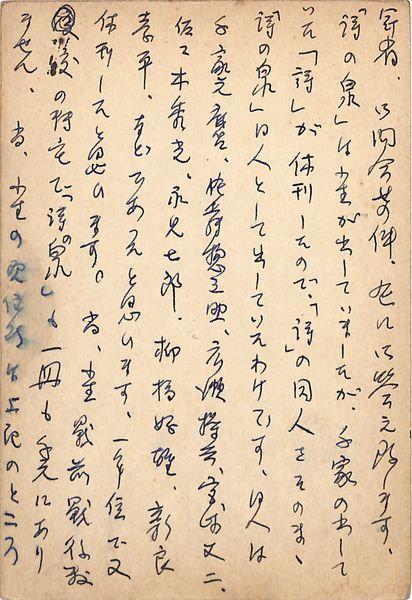 冠省、御問合せの件、左に御答え致します、
「詩の泉」は小生が出していましたが、千家の出して
いた「詩」が休刊したので、「詩」の同人をそのまゝ
「詩の泉」同人として出していたわけです、同人は
千家元麿、佐藤惣之助、広瀬操吉、宮崎丈二、
佐々木秀光、永見七郎、柳橋好雄、新良
孝平、などであったと思ひます、一年位で又
休刊したと思ひます。尚、小生戦前戦後数
度の转宅で「詩の泉」も一冊も手元にあり
ません、尚、小生の現住所は上記のところ